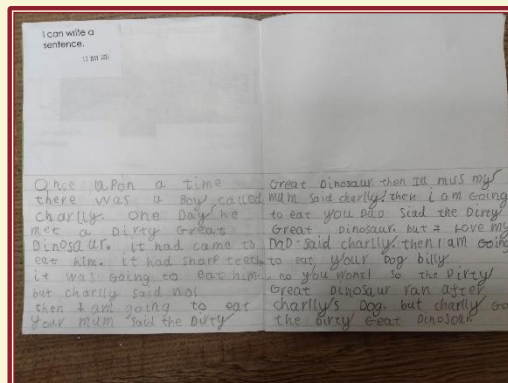 I can write a
sentence.
Once upon a time
there was a Boy called
charlly. One Day he
met a Dirty Great
Dinosaur. it had came to
eat him. it had sharp teeth
it was Going to eat him.
but charlly said no!
then I am going to eat
Your mum said the Dirty
Great Dinosaur then Ill miss my
mum said charlly. then i am Going
to eat you DaD Siad the Dirty
Great Dinosaur. but I Love my
DaD. said charlly. then I am Going
to eat your Dog billy.
no you wont! So the Dirty
Great Dinosaur ran after
charlly's Dog. but charlly
the Dirty Geat Dinosaur